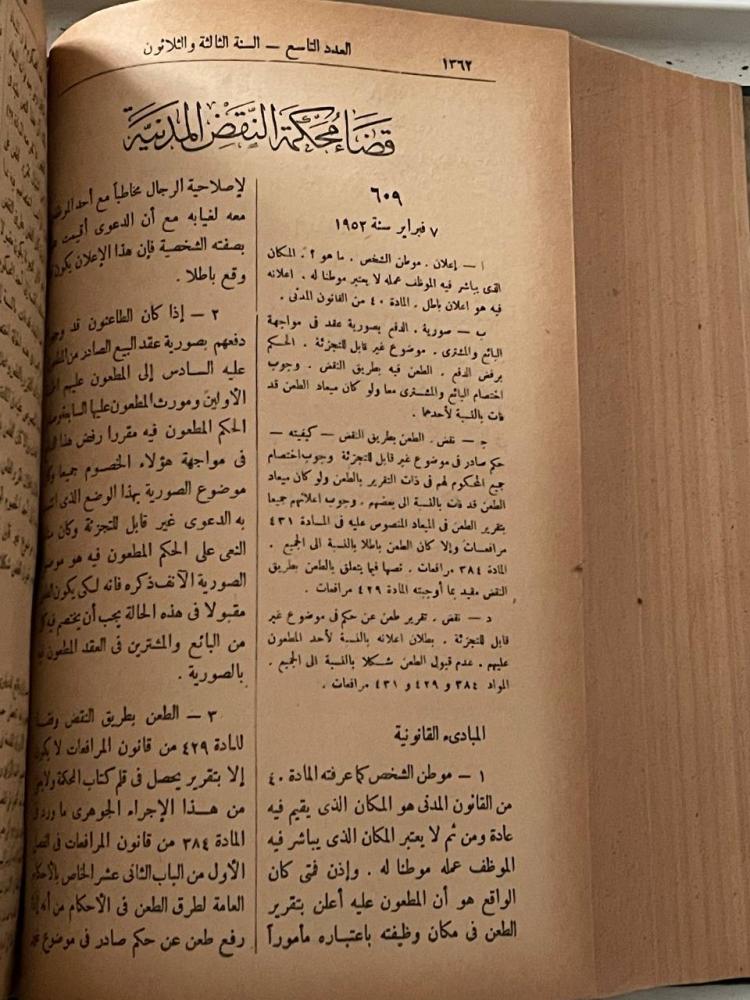 العدد التاسع — السنة الثالثة والثلاثون
١٣٦٢
قضاء محكمة النقض المدنية
٦٠٩
٧ فبراير سنة ١٩٥٢
ا — إعلان . موطن الشخص . ما هو ؟ . المكان
الذى يباشر فيه الموظف عمله لا يعتبر موطنا له . اعلانه
فيه هو اعلان باطل . المادة ٤٠ من القانون المدنى .
ب — صورية . الدفع بصورية عقد فى مواجهة
البائع والمشترى . موضوع غير قابل للتجزئة . الحكم
برفض الدفع . الطعن فيه بطريق النقض . وجوب
اختصام البائع والمشترى معا ولو كان ميعاد الطعن قد
فات بالنسبة لأحدهما .
جـ — نقض . الطعن بطريق النقض — كيفيته —
حكم صادر فى موضوع غير قابل للتجزئة وجوب اختصام
جميع المحكوم لهم فى ذات التقرير بالطعن ولو كان ميعاد
الطعن قد فات بالنسبة الى بعضهم . وجوب اعلانهم جميعا
بتقرير الطعن فى الميعاد المنصوص عليه فى المادة ٤٣١
مرافعات وإلا كان الطعن باطلا بالنسبة الى الجميع .
المادة ٣٨٤ مرافعات . نصها فيما يتعلق بالطعن بطريق
النقض مقيد بما أوجبته المادة ٤٢٩ مرافعات .
د — نقض . تقرير طعن عن حكم فى موضوع غير
قابل للتجزئة . بطلان اعلانه بالنسبة لأحد المطعون
عليهم . عدم قبول الطعن شكلا بالنسبة الى الجميع .
المواد ٣٨٤ و ٤٢٩ و ٤٣١ مرافعات .
المبادىء القانونية
١ — موطن الشخص كما عرفته المادة ٤٠
من القانون المدنى هو المكان الذى يقيم فيه
عادة ومن ثم لا يعتبر المكان الذى يباشر فيه
الموظف عمله موطنا له . وإذن فمتى كان
الواقع هو أن المطعون عليه أعلن بتقرير
الطعن فى مكان وظيفته باعتباره مأموراً
لإصلاحية الرجال مخاطباً مع أحد
معه لغيابه مع أن الدعوى أقيمت
بصفته الشخصية فإن هذا الإعلان يكون
وقع باطلا .
٢ — إذا كان الطاعنون قد
دفعهم بصورية عقد البيع الصادر من
عليه السادس إلى المطعون عليهم
الأولين ومورث المطعون عليها
الحكم المطعون فيه مقررا رفض هذا
فى مواجهة هؤلاء الخصوم جميعا
موضوع الصورية بهذا الوضع الذى
به الدعوى غير قابل للتجزئة وكان
النعى على الحكم المطعون فيه هو
الصورية الآنف ذكره فانه لكى يكون
مقبولا فى هذه الحالة يجب أن يختصم فيه
من البائع والمشترين فى العقد المطعون
بالصورية .
٣ — الطعن بطريق النقض
للمادة ٤٢٩ من قانون المرافعات لا يكون
إلا بتقرير يحصل فى قلم كتاب المحكمة
من هذا الإجراء الجوهرى ما ورد
المادة ٣٨٤ من قانون المرافعات فى
الأول من الباب الثانى عشر الخاص
العامة لطرق الطعن فى الأحكام من أنه
رفع طعن عن حكم صادر فى موضوع